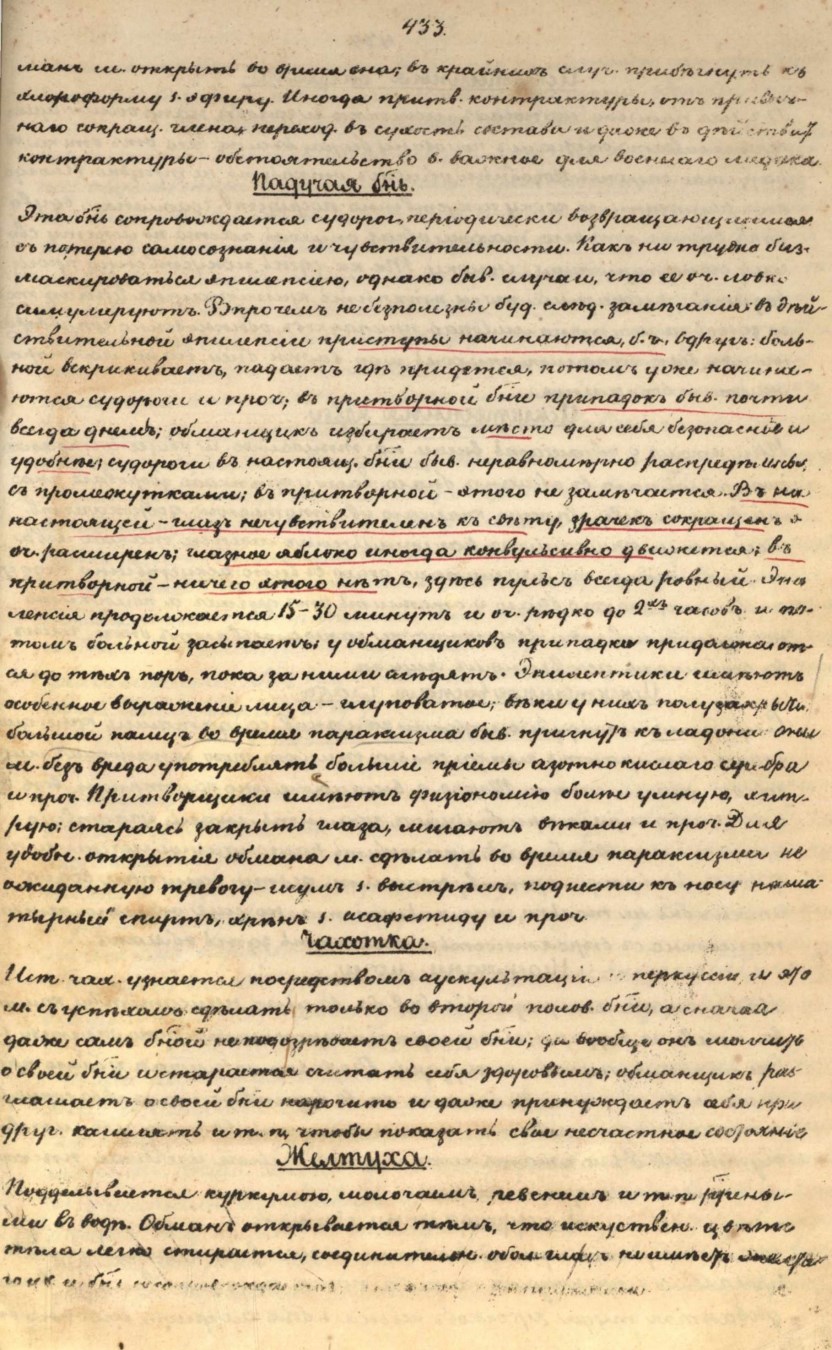 433.
манъ м. открыть во время сна; въ крайнемъ случ. прибѣгнуть къ
хлороформу s. эфиру. Иногда притв. контрактуры, отъ привыч-
наго сокращ. члена, переход. въ сухость состава и даже въ дѣйствит.
контрактуры – обстоятельство б. важное для военнаго медика.
Падучая бнь.
Эта бнь сопровождается судорог., періодически возвращающимися
съ потерею самосознанія и чувствительности. Какъ ни трудно биз-
маскироваться эпилепсіею, однако быв. случаи, что ее оч. ловко
симулируютъ. Впрочемъ не безполезны буд. слѣд. замѣчанія: въ дѣй-
ствительной эпилепсіи приступы начинаются, б. ч., вдругъ: боль-
ной вскрикиваетъ, падаетъ гдѣ придется, потомъ уже начина-
ются судороги и проч; въ притворной бни припадокъ быв. почти
всегда днемъ; обманщикъ избираетъ мѣсто для себя безопасное и
удобное; судороги въ настоящ. бни быв. неравномѣрно распредѣлены,
съ промежутками; въ притворной – этого не замѣчается. Въ на
настоящей – глазъ нечувствителенъ къ свѣту, зрачекъ сокращенъ s
оч. расширенъ; глазное яблоко иногда конвульсивно движется; въ
притворной – ничего этого нѣтъ, здѣсь пульсъ всегда ровный. Эпи
лепсія продолжается 15-30 минутъ и оч. рѣдко до 2хъ часовъ и по-
томъ больной засыпаетъ; у обманщиковъ припадки придолжают-
ся до тѣхъ поръ, пока за ними слѣдятъ. Эпилептики имѣютъ
особенное выраженіе лица – глуповатое; вѣки у нихъ полузакрыты,
большой палецъ во время параксизма быв. пригнутъ къ ладони они
м. безъ вреда употреблять большіе пріемы азотнокислаго серебра
и проч. Притворщики имѣютъ физіономію болѣе умную, хит-
рую; стараясь закрыть глаза, мигаютъ вѣками и проч. Для
удобн. открытія обмана м. сдѣлать во время параксизма не
ожиданную тревогу – шумъ s. выстрѣлъ, поднести къ носу наша-
тырный спиртъ, хрѣнъ s. асафетиду и проч
Чахотка.
Ист. чах. узнается посредствомъ аускультаціи и перкуссіи, и это
м. съ успѣхомъ сдѣлать только во второй полов. бни, а сначала
даже самъ бной не подозрѣваетъ своей бни; да вообще онъ молчитъ
о своей бни и старается считать себя здоровымъ; обманщикъ раз-
глашаетъ о своей бни нарочито и даже принуждаетъ себя при
друг. кашлять и т. п, чтобы показать свое несчастное состояніе
Желтуха.
Поддѣлывается куркумою, молочаемъ, ревенемъ и т. п.
ми въ водѣ. Обманъ открывается тѣмъ, что искуствен. цвѣтъ
тѣла легко стирается, соединительн. обол. глазъ не имѣетъ